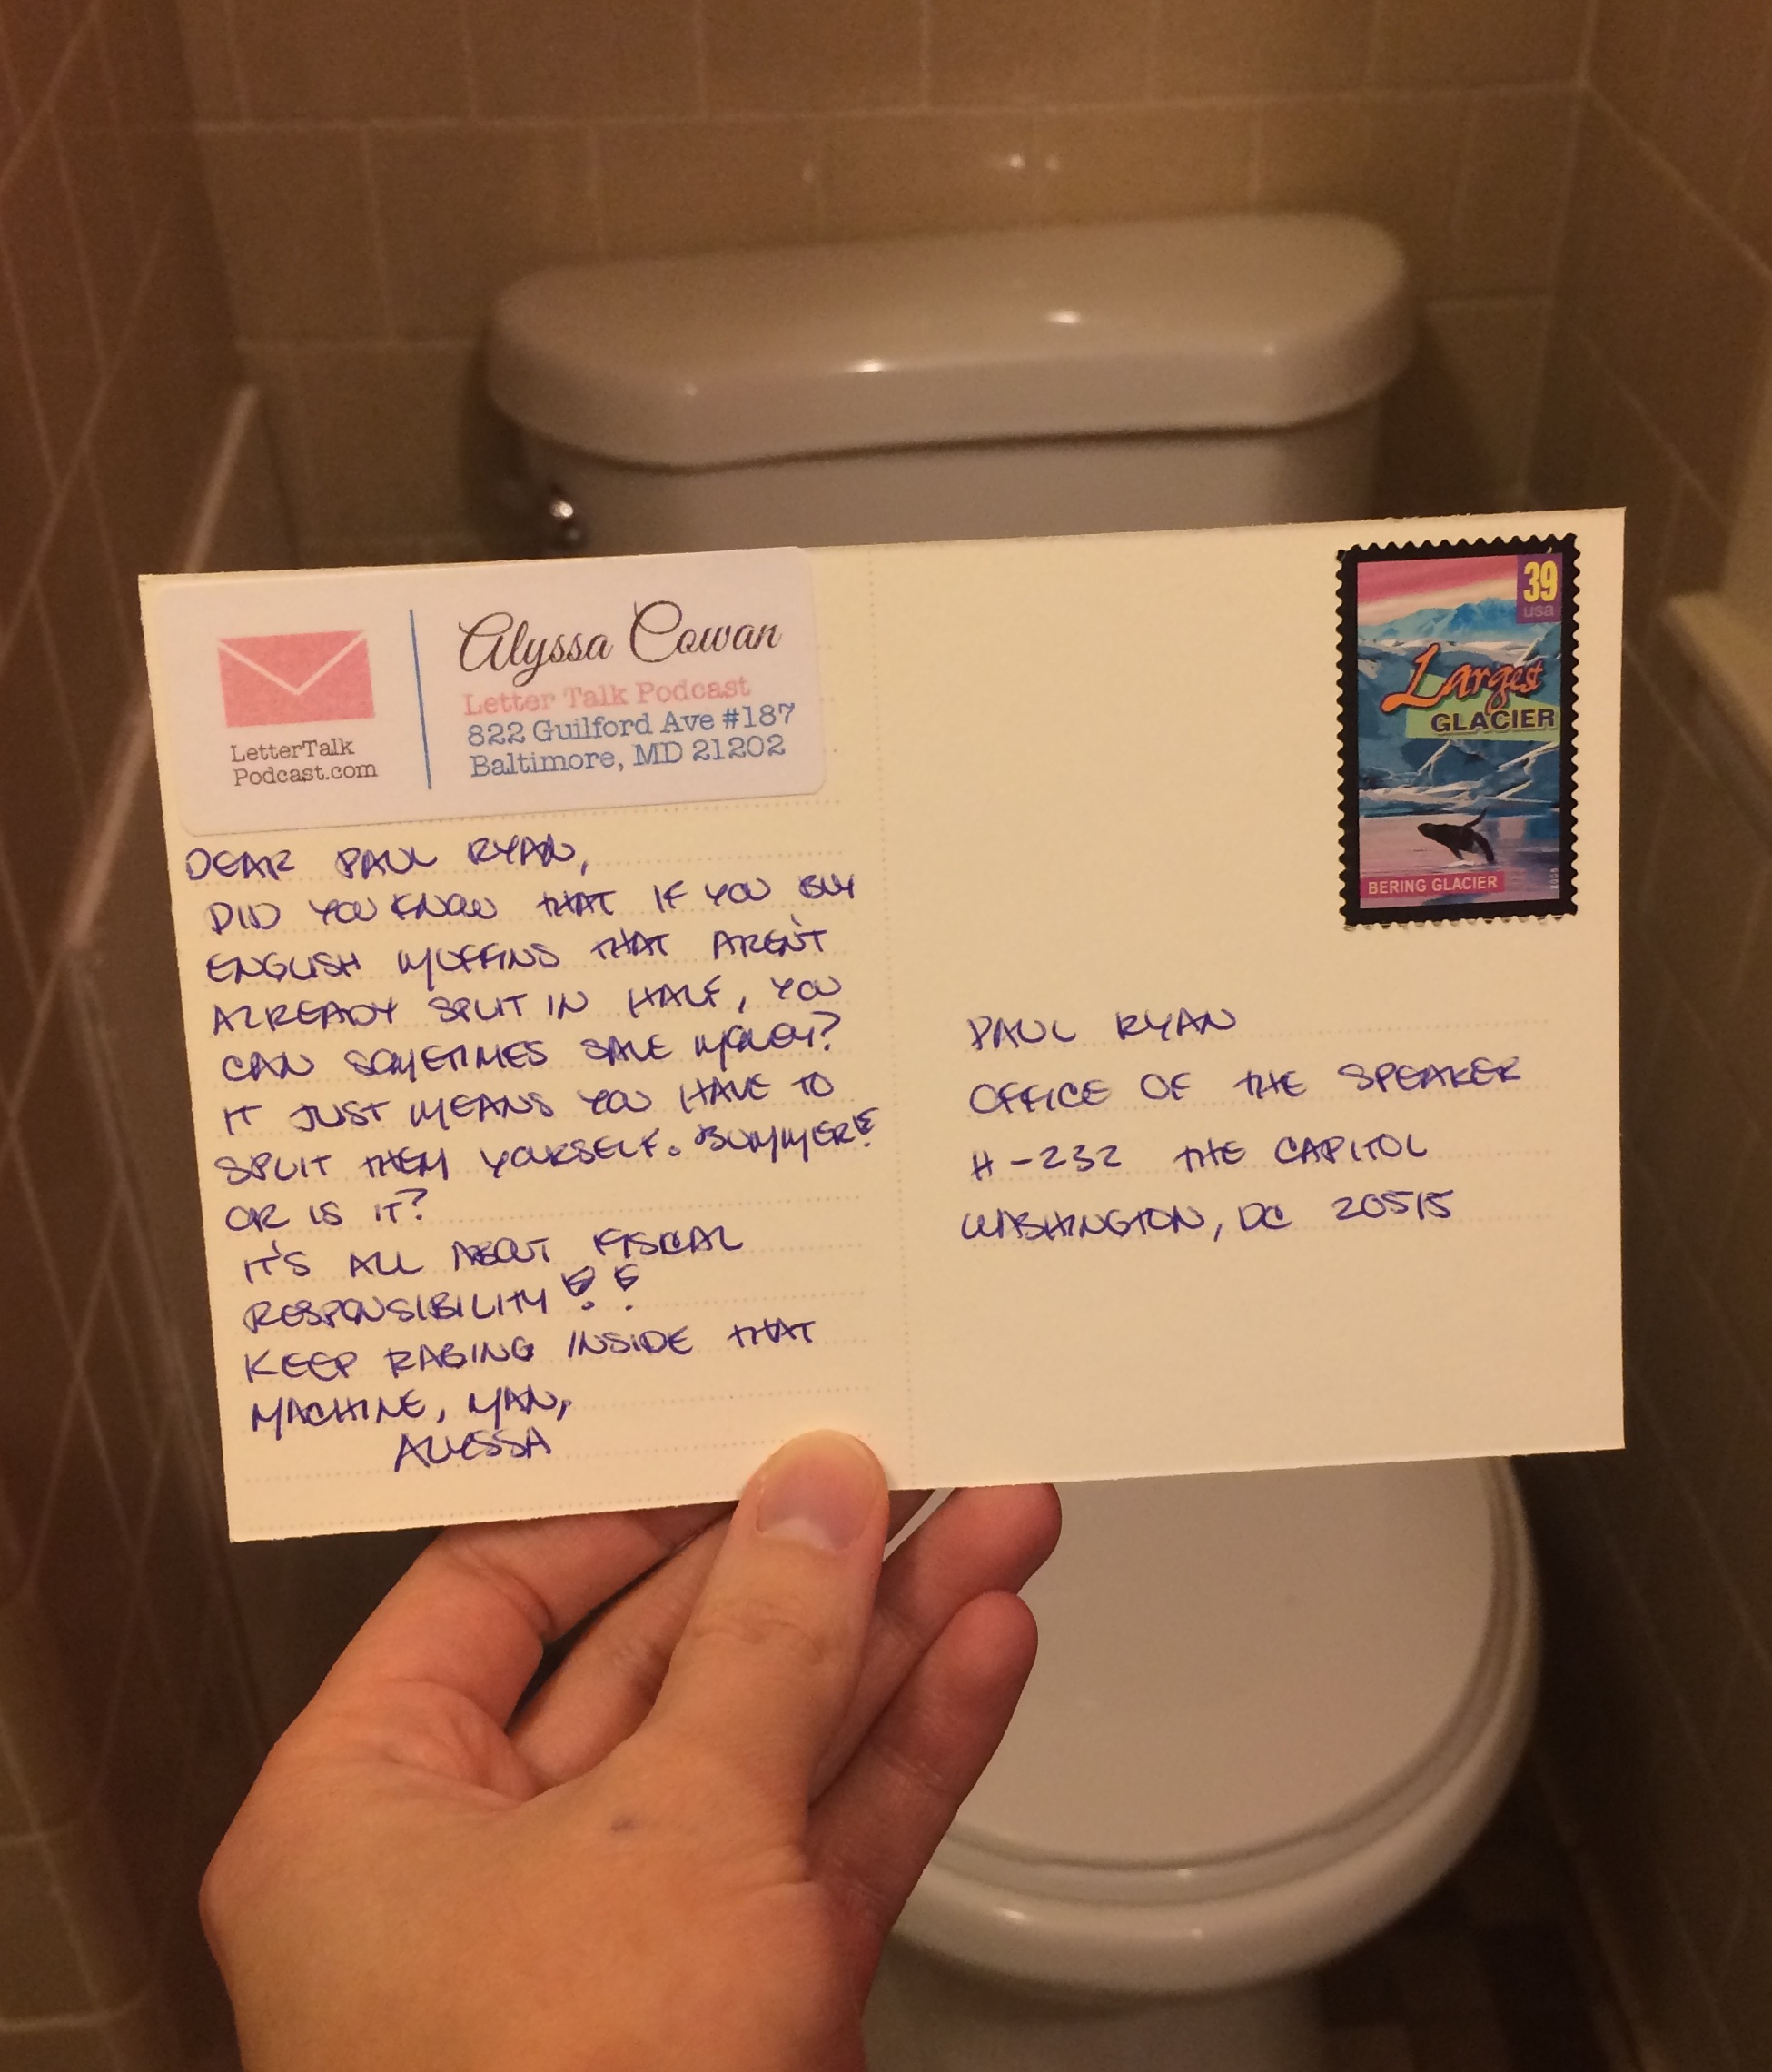 Alyssa Cowan
Letter Talk Podcast
822 Guilford Ave #187
Baltimore, MD 21202
LetterTalk
Podcast.com
DEAR PAUL RYAN,
DID YOU KNOW THAT IF YOU BUY
ENGLISH MUFFINS THAT AREN'T
ALREADY SPLIT IN HALF, YOU
CAN SOMETIMES SAVE MONEY?
IT JUST MEANS YOU HAVE TO
SPLIT THEM YOURSELF. BUMMER!
OR IS IT?
IT'S ALL ABOUT FISCAL
RESPONSIBILITY!!
KEEP RAGING INSIDE THAT
MACHINE, MAN,
ALYSSA
39
usa
Largest
GLACIER
BERING GLACIER
PAUL RYAN
OFFICE OF THE SPEAKER
H-232 THE CAPITOL
WASHINGTON, DC 20515